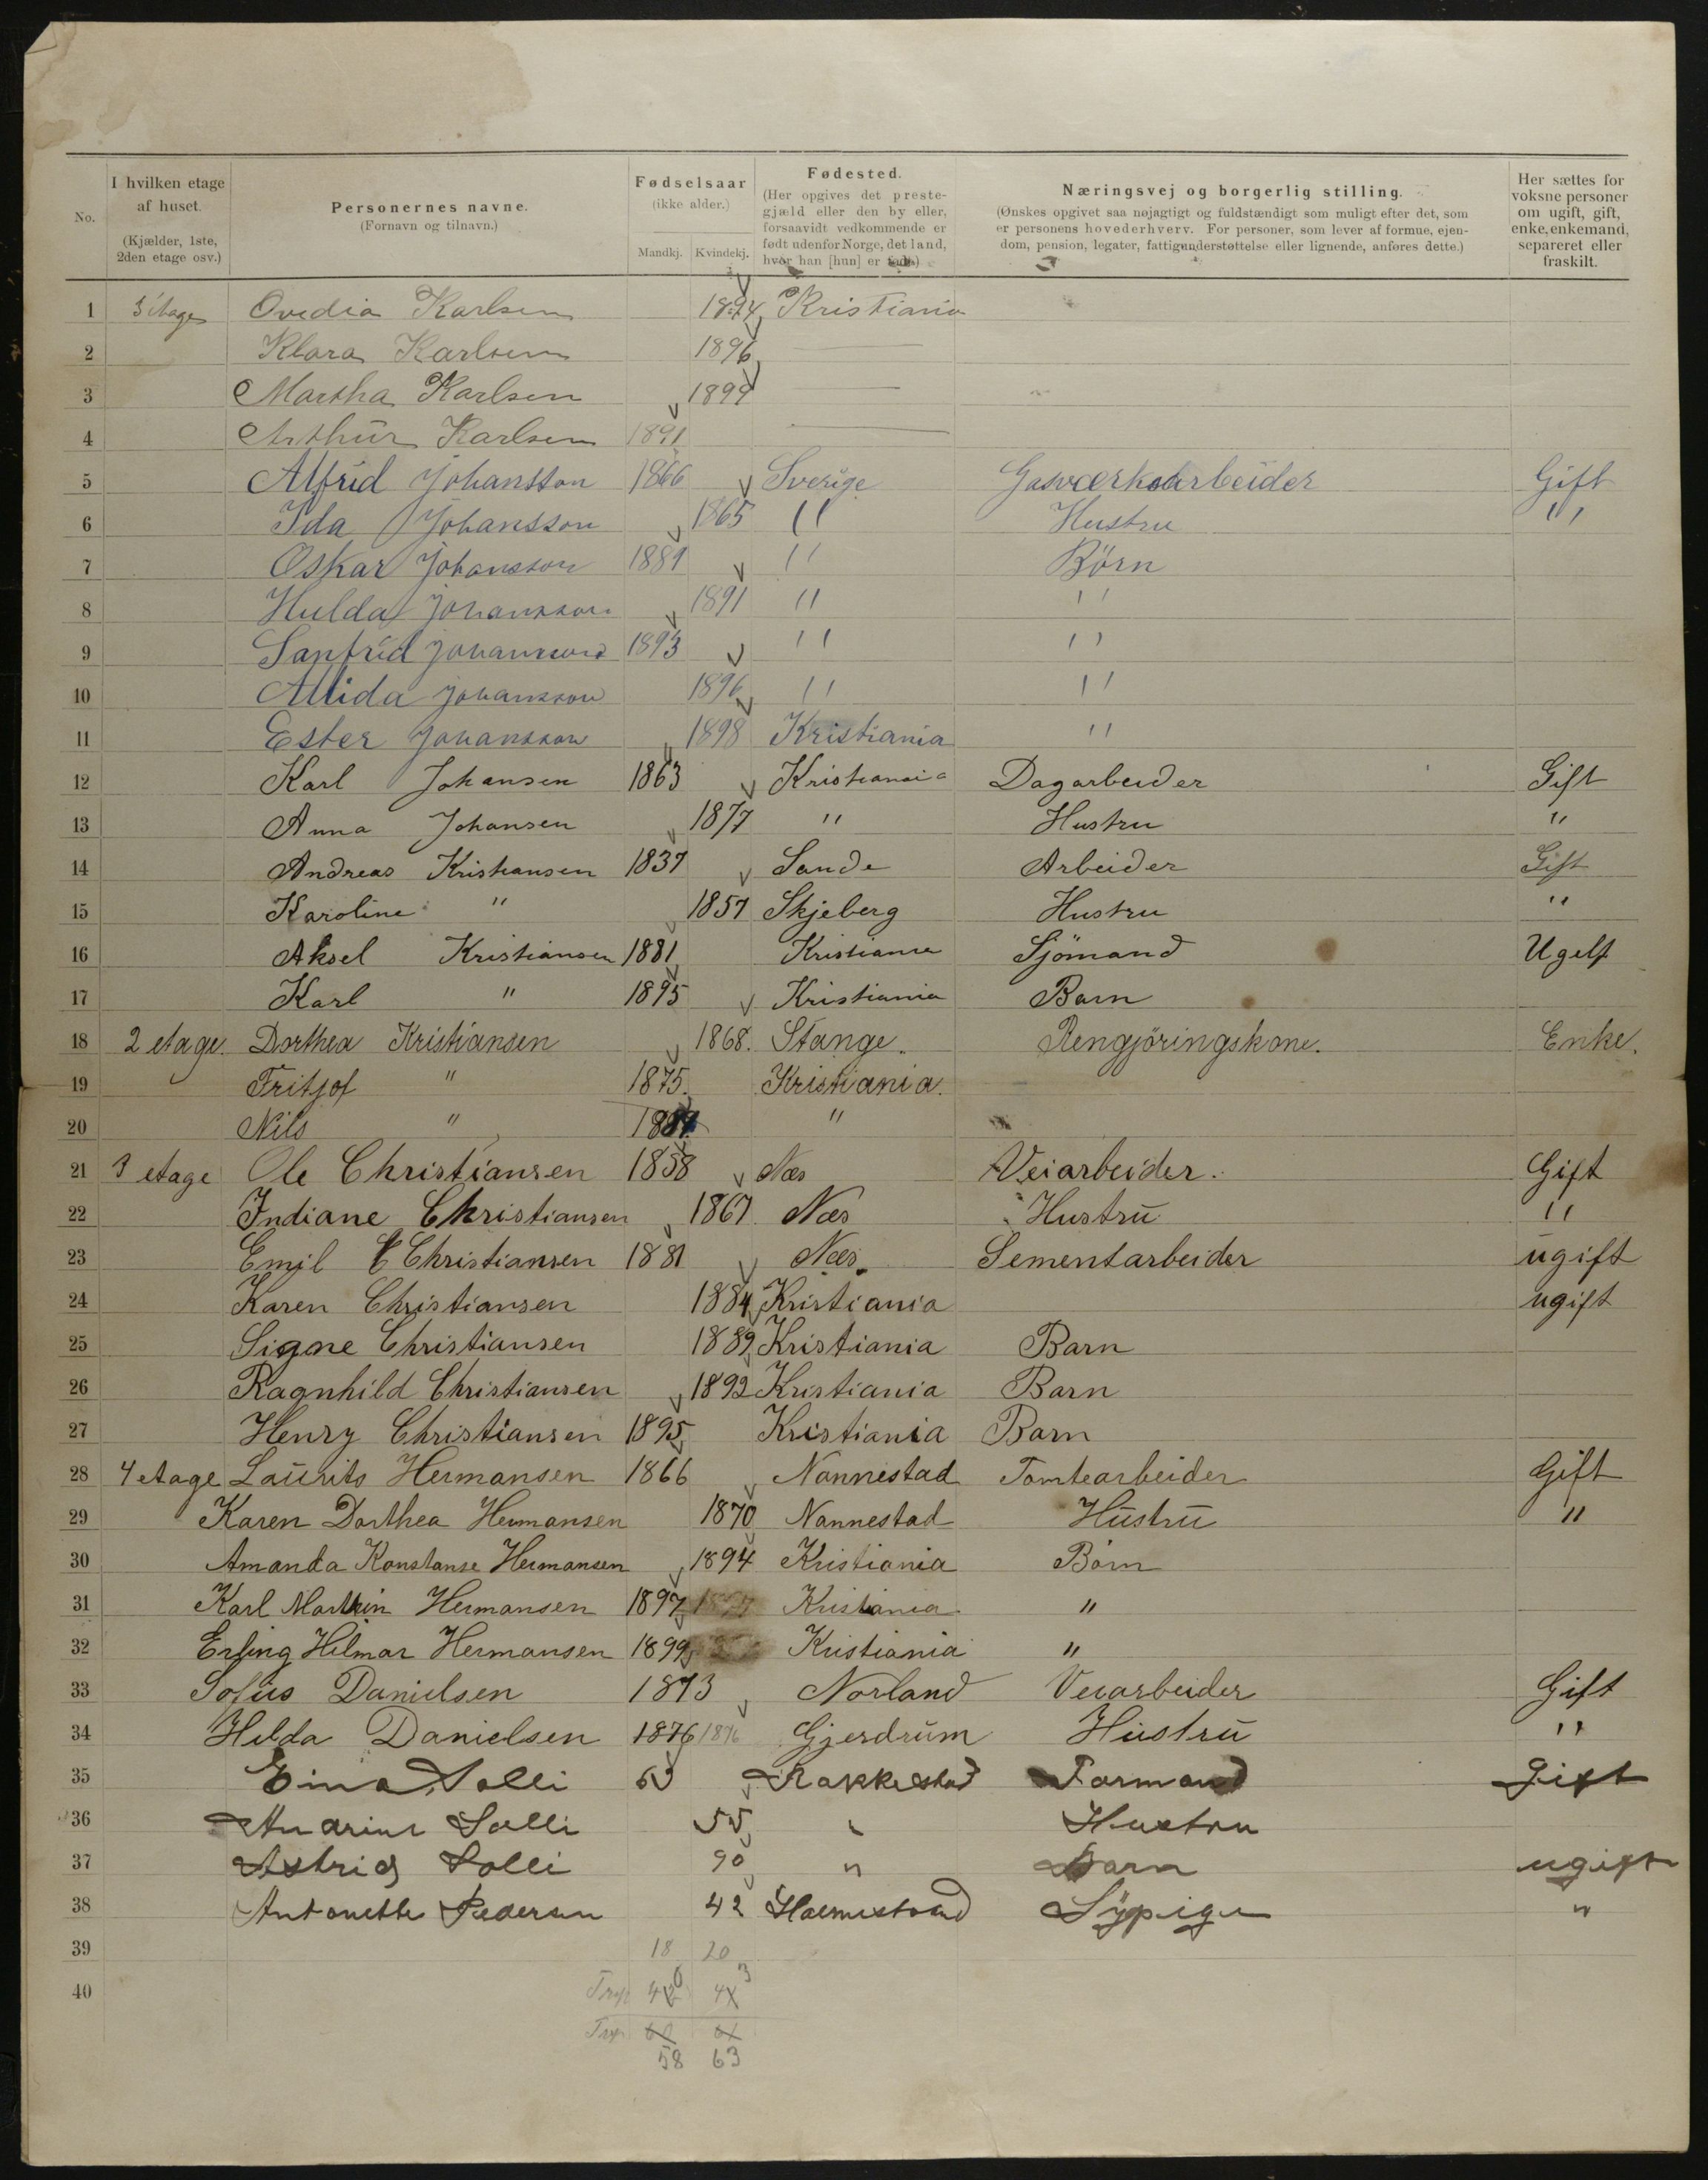 No. I hvilken etage af huset. (Kjælder, 1ste, 2den etage osv.) Personernes navne. (Fornavn og tilnavn.) Fødselsaar (ikke alder.) Mandkj. Kvindekj. Fødested. (Her opgives det prestegjæld eller den by eller, forsaavidt vedkommende er født udenfor Norge, det land, hvor han [hun] er født.) Næringsvej og borgerlig stilling. (Ønskes opgivet saa nøjagtigt og fuldstændigt som muligt efter det, som er personens hovederhverv. For personer, som lever af formue, ejendom, pension, legater, fattigunderstøttelse eller lignende, anføres dette.) Her sættes for voksne personer om ugift, gift, enke, enkemand, separeret eller fraskilt.
1 3 etage Ovedia Karlsen 1894 Kristiania
2 Klara Karlsen 1896 —
3 Martha Karlsen 1899 —
4 Arthur Karlsen 1891 —
5 Alfrid Johansson 1866 Sverige Gasværksarbeider Gift
6 Ida Johansson 1865 " Hustru "
7 Oskar Johansson 1889 " Börn
8 Hulda Johansson 1891 " "
9 Sanfrid Johansson 1893 " "
10 Allida Johansson 1896 " "
11 Ester Johansson 1898 Kristiania "
12 Karl Johansen 1863 Kristiania Dagarbeider Gift
13 Anna Johansen 1877 " Hustru "
14 Andreas Kristiansen 1837 Sande Arbeider Gift
15 Karoline " 1857 Skjeberg Hustru "
16 Aksel Kristiansen 1881 Kristiania Sjömand Ugift
17 Karl " 1895 Kristiania Barn
18 2 etage. Dorthea Kristiansen 1868. Stange. Rengjöringskone. Enke.
19 Fritjof " 1875. Kristiania.
20 Nils " "
21 3 etage Ole Christiansen 1858 Næs Veiarbeider. Gift
22 Indiane Christiansen 1867 Næs Hustru "
23 Emil Christiansen 1881 Næs. Sementarbeider ugift
24 Karen Christiansen 1884 Kristiania ugift
25 Signe Christiansen 1889 Kristiania Barn
26 Ragnhild Christiansen 1892 Kristiania Barn
27 Henry Christiansen 1895 Kristiania Barn
28 4 etage Laurits Hermansen 1866 Nannestad Tomtearbeider Gift
29 Karen Dorthea Hermansen 1870 Nannestad Hustru "
30 Amanda Konstanse Hermansen 1894 Kristiania Börn
31 Karl Martin Hermansen 1897 Kristiania "
32 Erling Hilmar Hermansen 1899 Kristiania "
33 Sofus Danielsen 1873 Norland Veiarbeider Gift
34 Hilda Danielsen 1876 1876 Gjerdrum Hustru "
35 Solli 63 Rakkestad Formand Gift
36 Solli 55 " Hustru
37 Astrid Solli 90 " Barn ugift
38 Antonette Pedersen 42 Holmestrand Sypige "
39 18 20
40
58 63